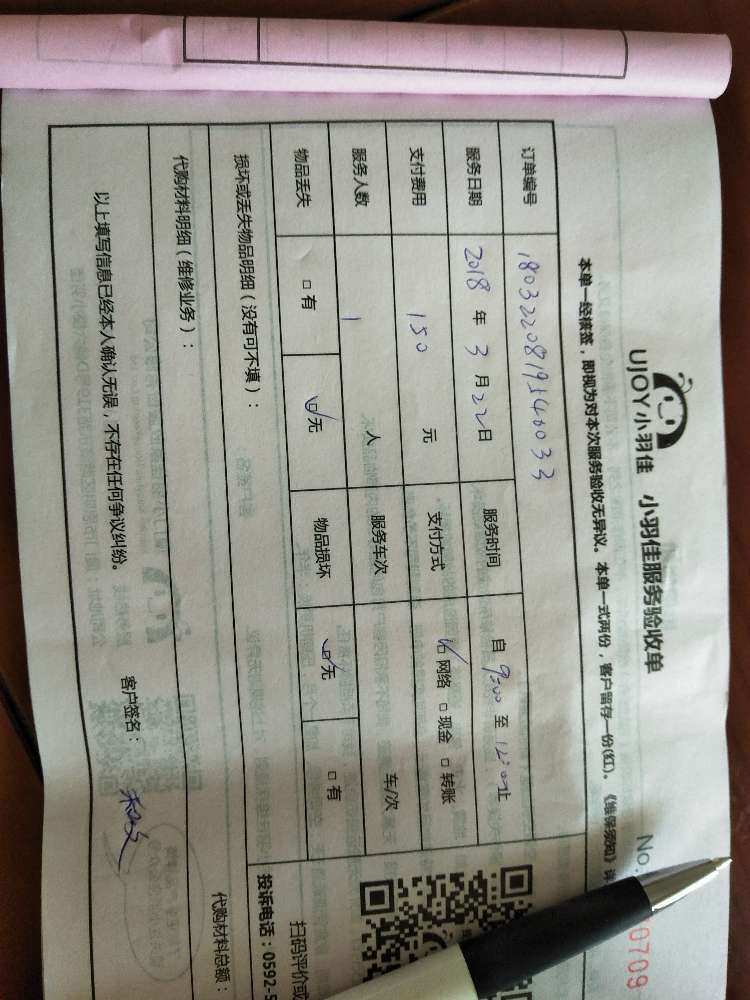 UJOY小羽佳 小羽佳服务验收单
No.
0709
本单一经核签，即视为对本次服务验收无异议。本单一式两份，客户留存一份(红)。《维保须知》详
订单编号 18032208191140033
服务日期 2018 年 3 月 22 日 服务时间 自 9:00 至 12:00 止
支付费用 150 元 支付方式 ☑网络 □现金 □转账
服务人数 1 人 服务车次 车/次
物品丢失 □有 ☑无 物品损坏 ☑无 □有
损坏或丢失物品明细（没有可不填）：
代购材料明细（维修业务）：
代购材料总额：
以上填写信息已经本人确认无误，不存在任何争议纠纷。 客户签名：
扫码评价或
投诉电话：0592-5